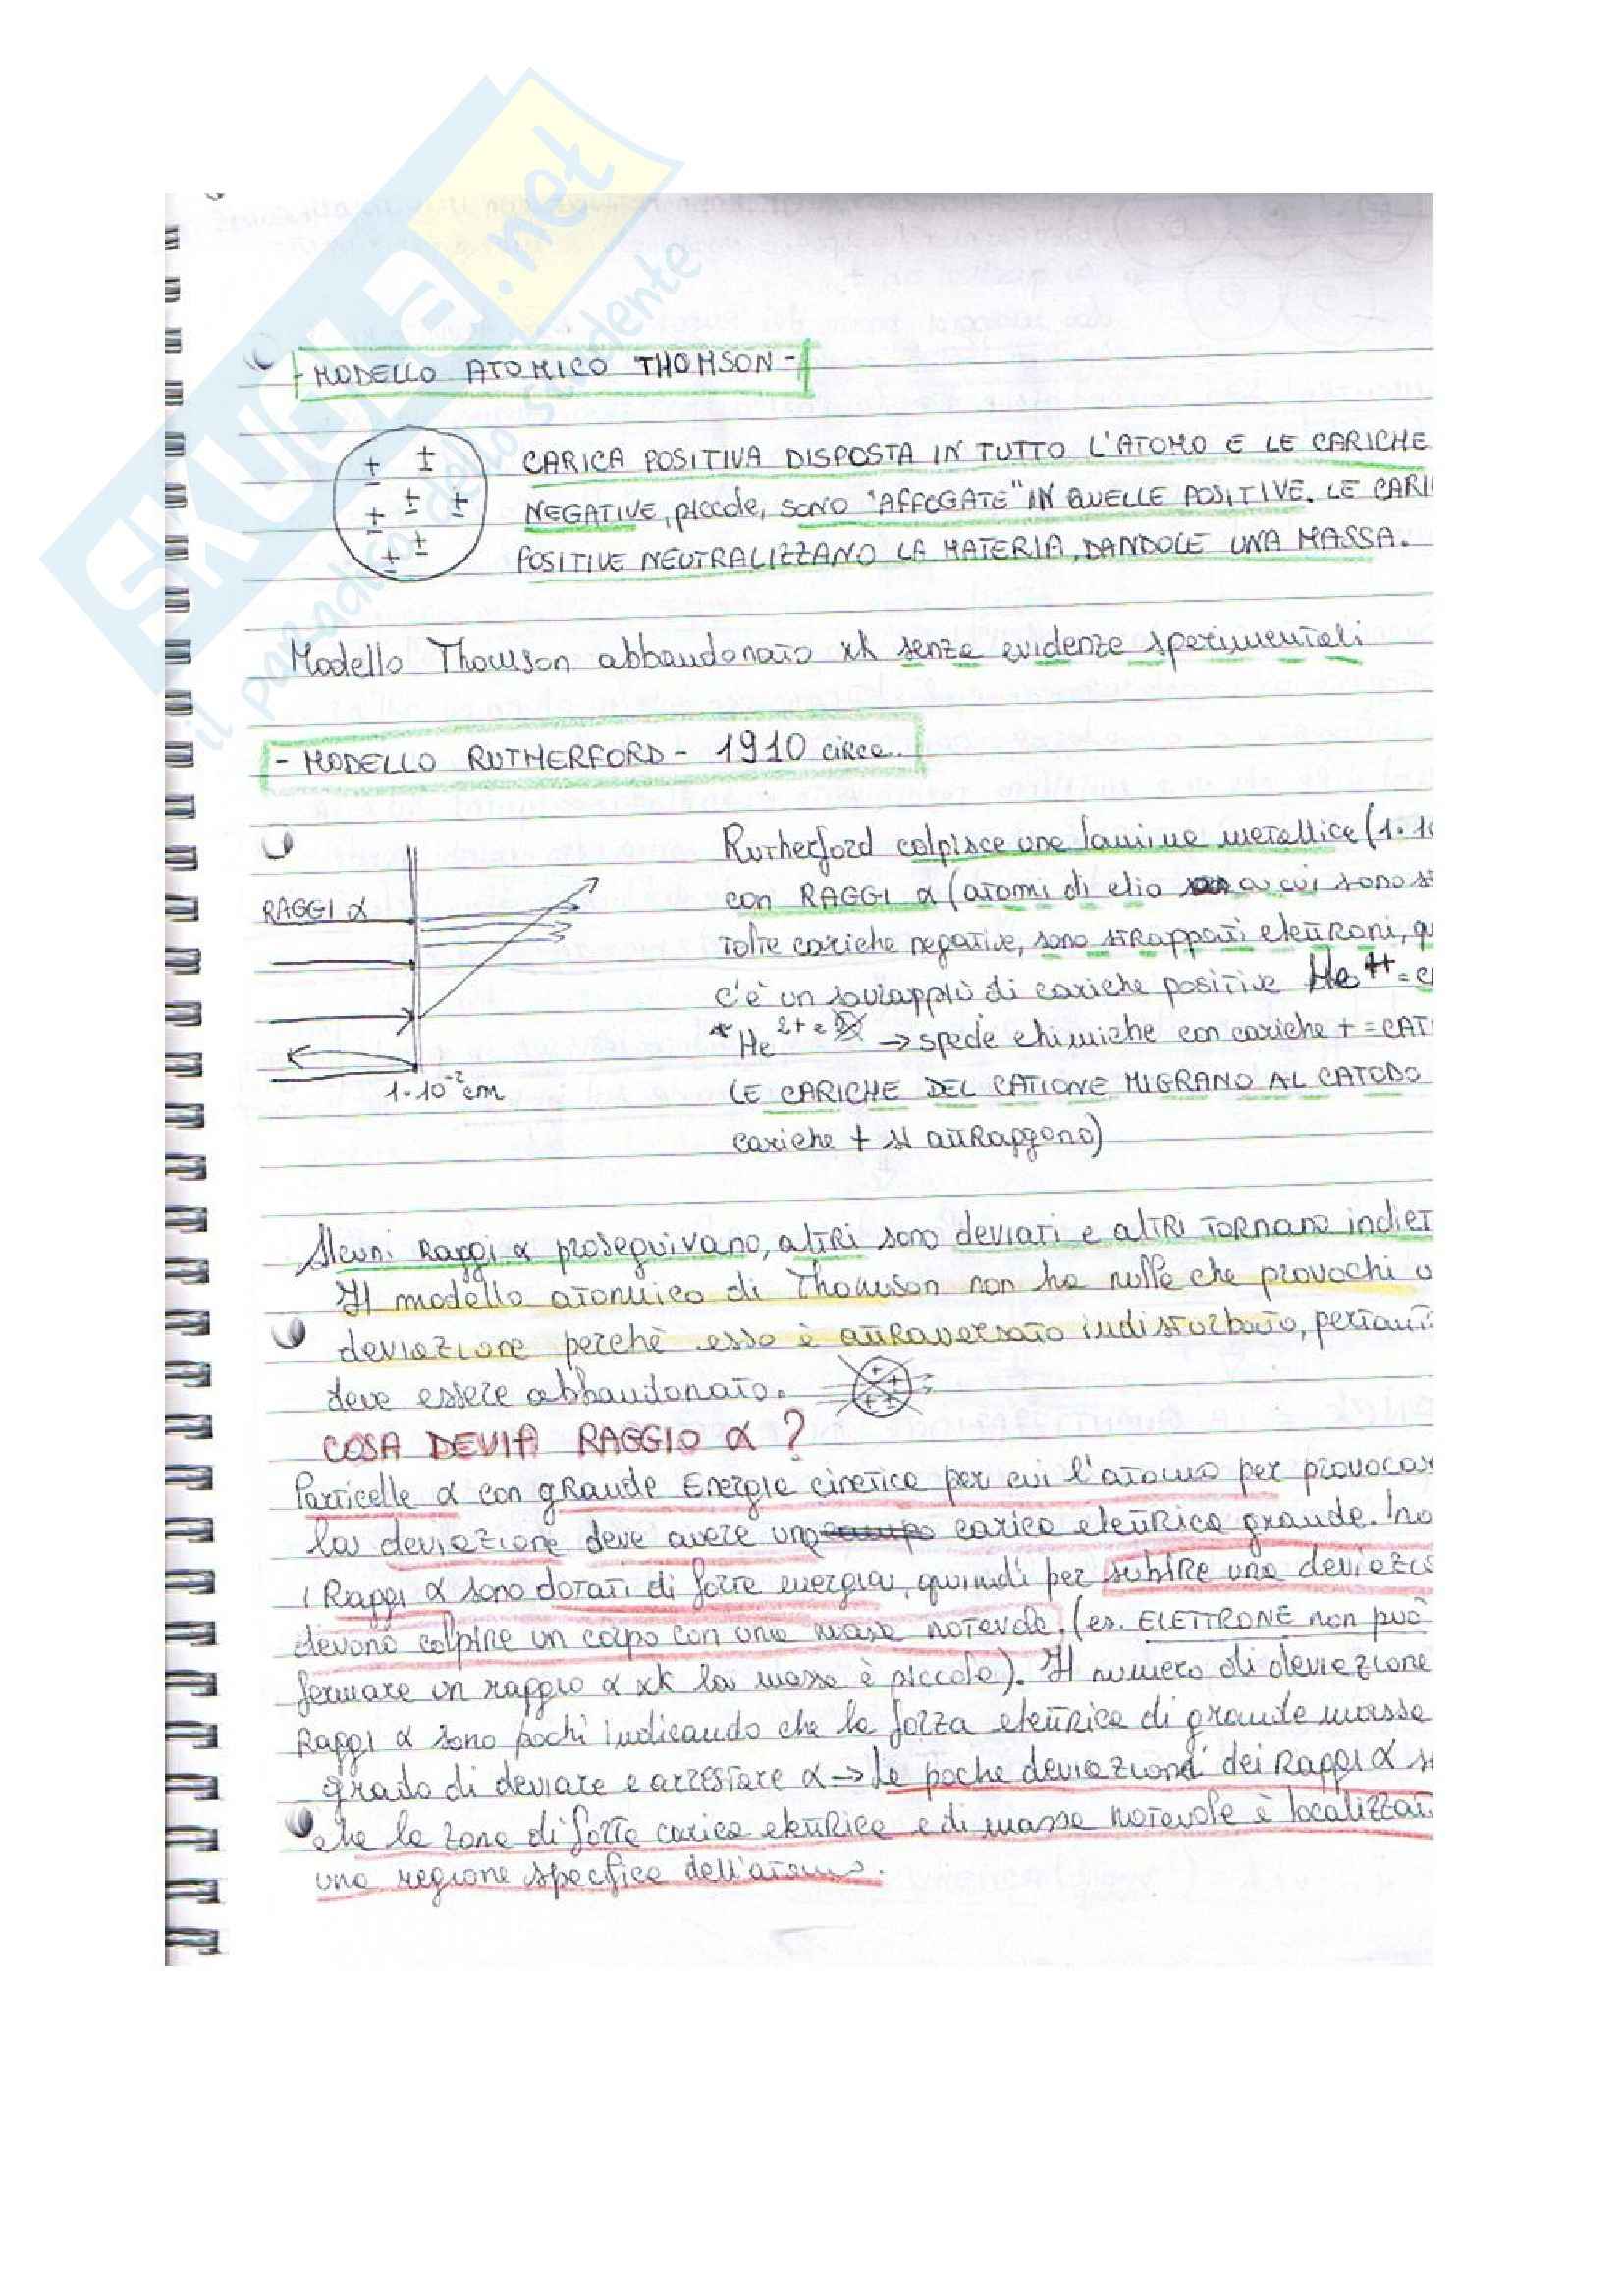 SKUOLA.net
il paradiso dello studente
- MODELLO ATOMICO THOMSON -
CARICA POSITIVA DISPOSTA IN TUTTO L'ATOMO E LE CARICHE
NEGATIVE, piccole, SONO "AFFOGATE" IN QUELLE POSITIVE. LE CARI
POSITIVE NEUTRALIZZANO LA MATERIA, DANDOLE UNA MASSA.
Modello Thomson abbandonato xk senza evidenze sperimentali
- MODELLO RUTHERFORD - 1910 circa.
Rutherford colpisce una lamina metallica (1·10
RAGGI α
con RAGGI α (atomi di elio a cui sono st
tolte cariche negative, sono strappati elettroni, qu
c'è un sovrappiù di cariche positive He ++ = c
* He 2+ → specie chimiche con cariche + = CAT
1·10⁻² cm
LE CARICHE DEL CATIONE MIGRANO AL CATODO
cariche + si attraggono)
Alcuni Raggi α proseguivano, altri sono deviati e altri tornano indiet
Il modello atomico di Thomson non ha nulla che provochi
deviazione perchè esso è attraversato indisturbato, pertant
deve essere abbandonato.
COSA DEVIA RAGGIO α?
Particelle α con grande Energia cinetica per cui l'atomo per provocar
la deviazione deve avere una carica elettrica grande. Ino
i Raggi α sono dotati di forte energia, quindi per subire una deviazi
devono colpire un corpo con una massa notevole. (es. ELETTRONE non può
fermare un raggio α xk la massa è piccola). Il numero di deviazione
Raggi α sono pochi indicando che la forza elettrica di grande massa
grado di deviare e arrestare α → Le poche deviazioni dei Raggi α s
che la zona di forte carica elettrica e di massa notevole è localizzat
una regione specifica dell'atomo.